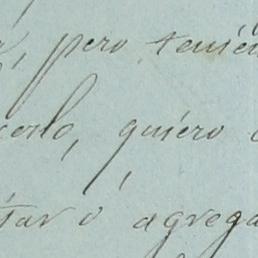 , pero tenién
cerlo, quiero
tar ó agrega